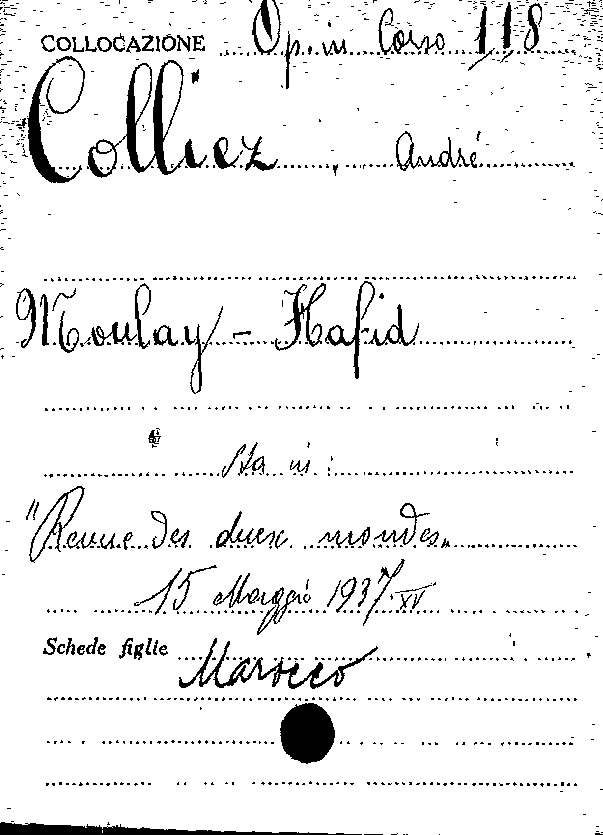 COLLOCAZIONE Op. in Corso 118
Colliez, André
Moulay - Hafid
Sta in :
"Revue des deux mondes„
15 Maggio 1937 XV
Schede figlie Marocco